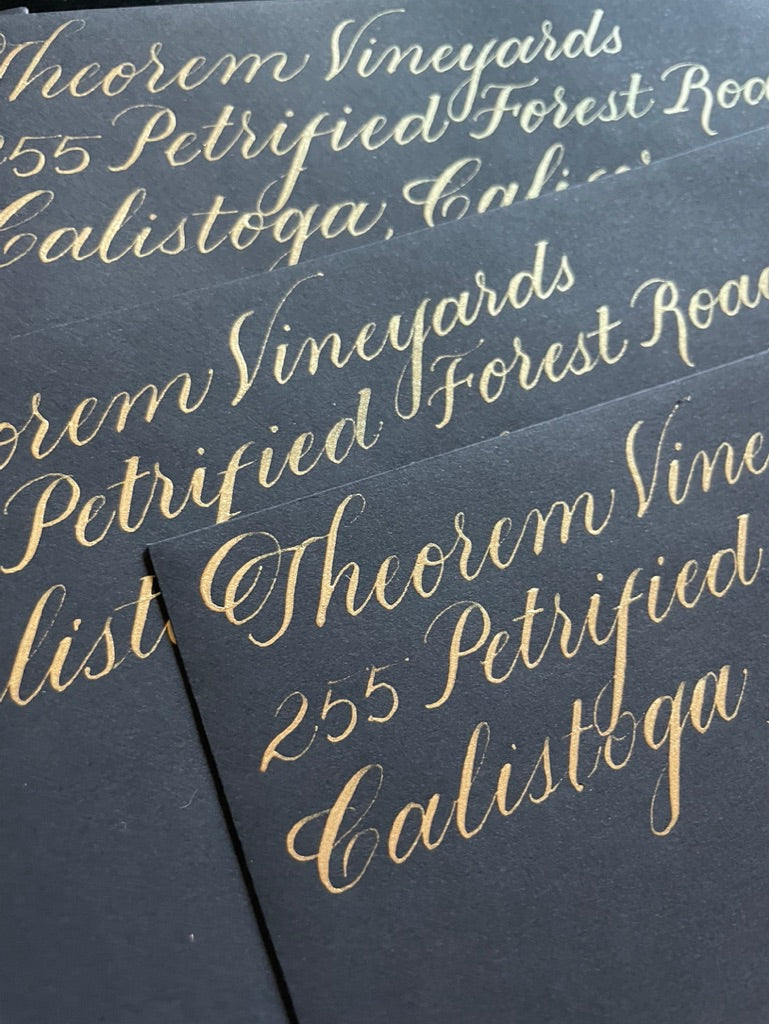 Theorem Vineyards
255 Petrified Forest Road
Calistoga, Califor
orem Vineyards
Petrified Forest Road
alist
Theorem Vine
255 Petrified
Calistoga